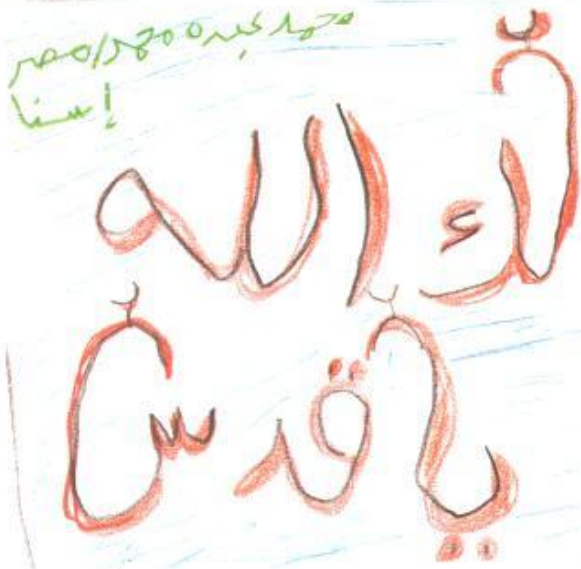 محمد عبده محمد/مصر
إسنا
لك الله
يا قدس